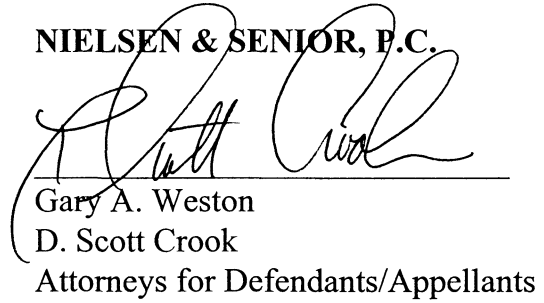 NIELSEN & SENIOR, P.C.
D. Scott Crook
Gary A. Weston
D. Scott Crook
Attorneys for Defendants/Appellants